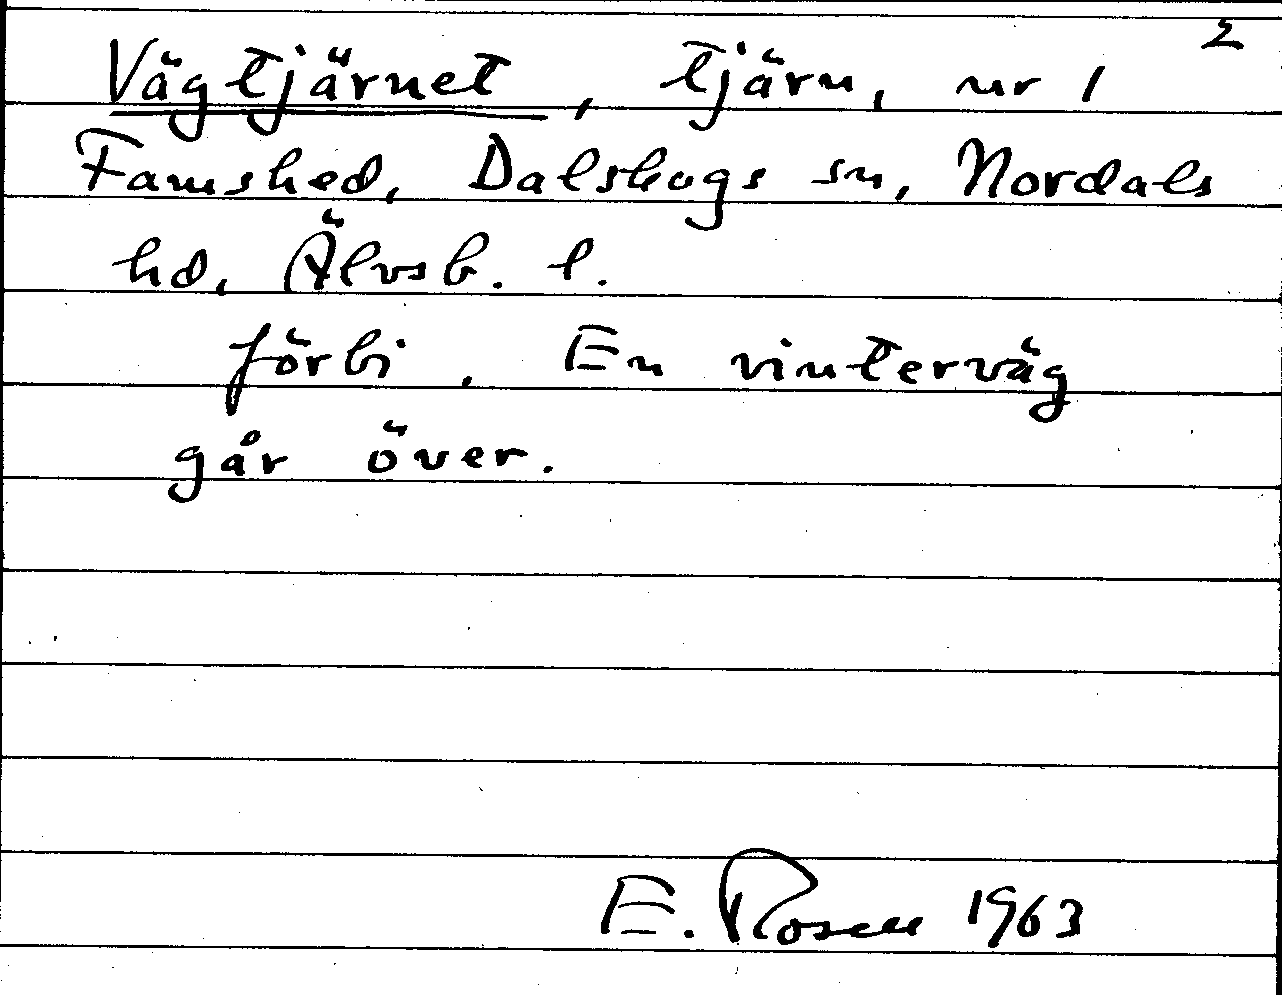 2
Vägtjärnet, tjärn, nr 1
Famshed, Dalskogs sn, Nordals
hd, Älvsb. l.
förbi. En vinterväg
går över.
E. Rosen 1963